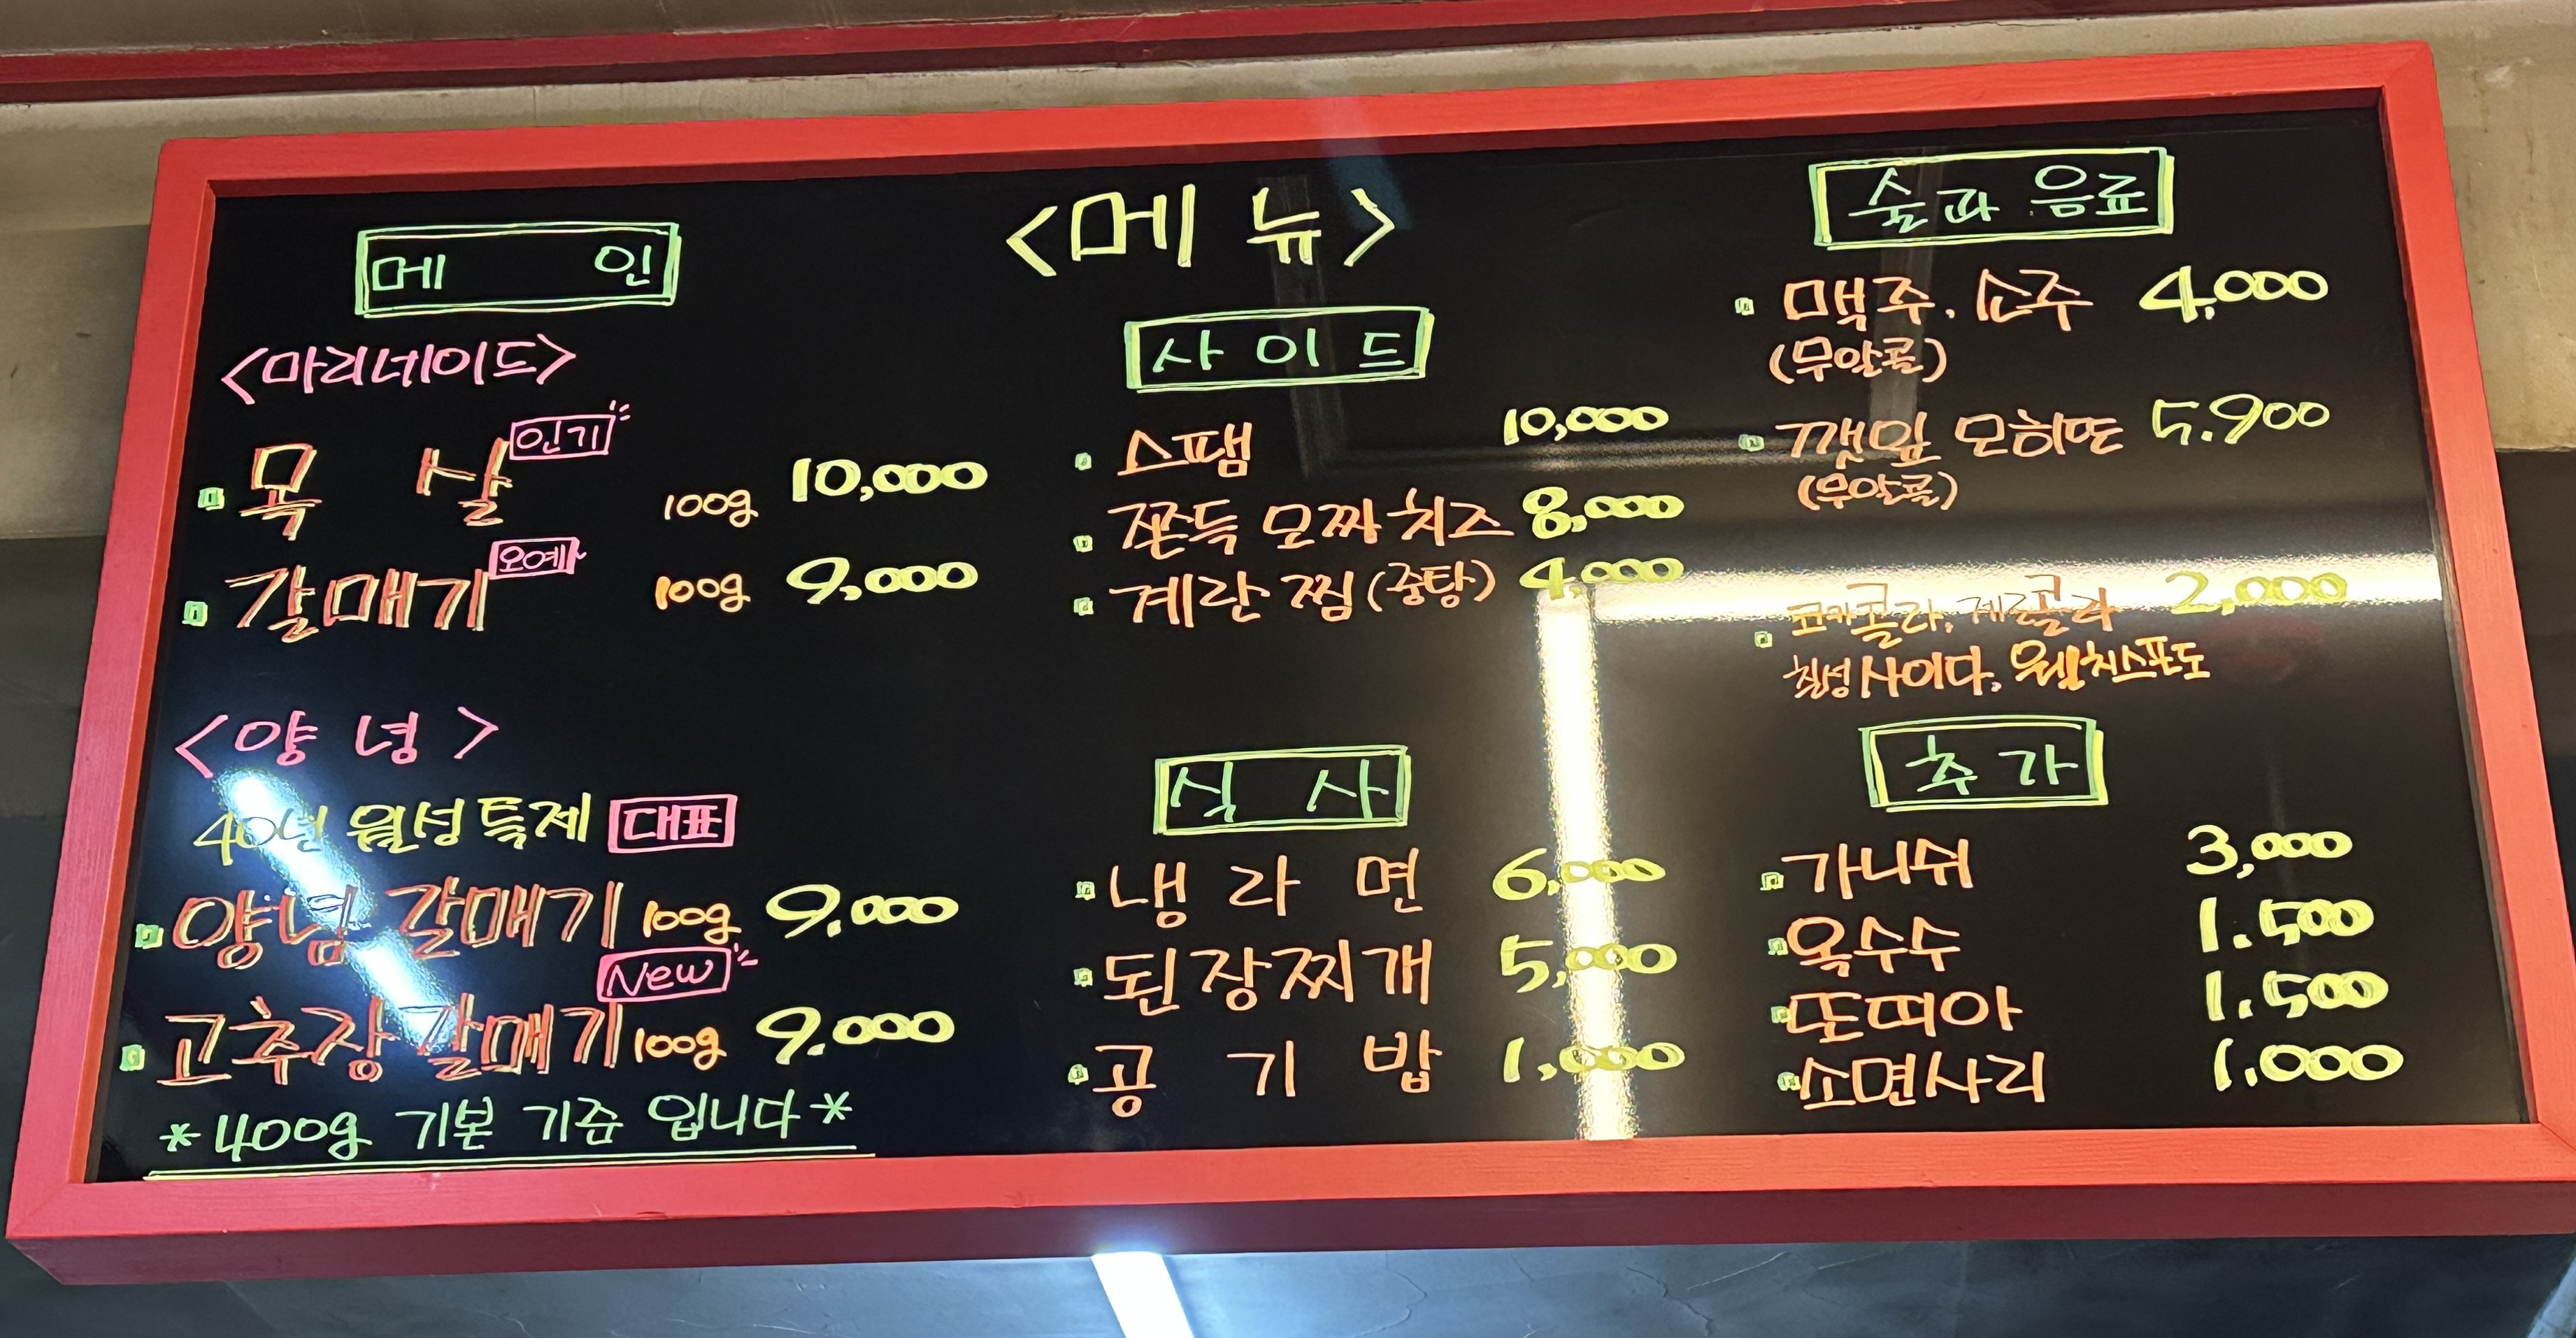 <메뉴>
메 인
<마리네이드>
목 살 인기 100g 10,000
갈매기 오예 100g 9,000
<양 념>
40년 월성특제 대표
양념 갈매기 100g 9.000
New
고추장 갈매기 100g 9.000
*400g 기본 기준 입니다*
사 이 드
스팸 10,000
쫀득 모짜 치즈 8,000
계란 찜 (중탕) 4,000
식 사
냉 라 면 6,000
된장찌개 5,000
공 기 밥 1,000
술과 음료
맥주. 소주 4,000
(무알콜)
깻잎 모히또 5.900
(무알콜)
코카콜라, 제로콜라 2,000
칠성사이다, 웰치스포도
추 가
가니쉬 3,000
옥수수 1.500
또띠아 1.500
소면사리 1,000